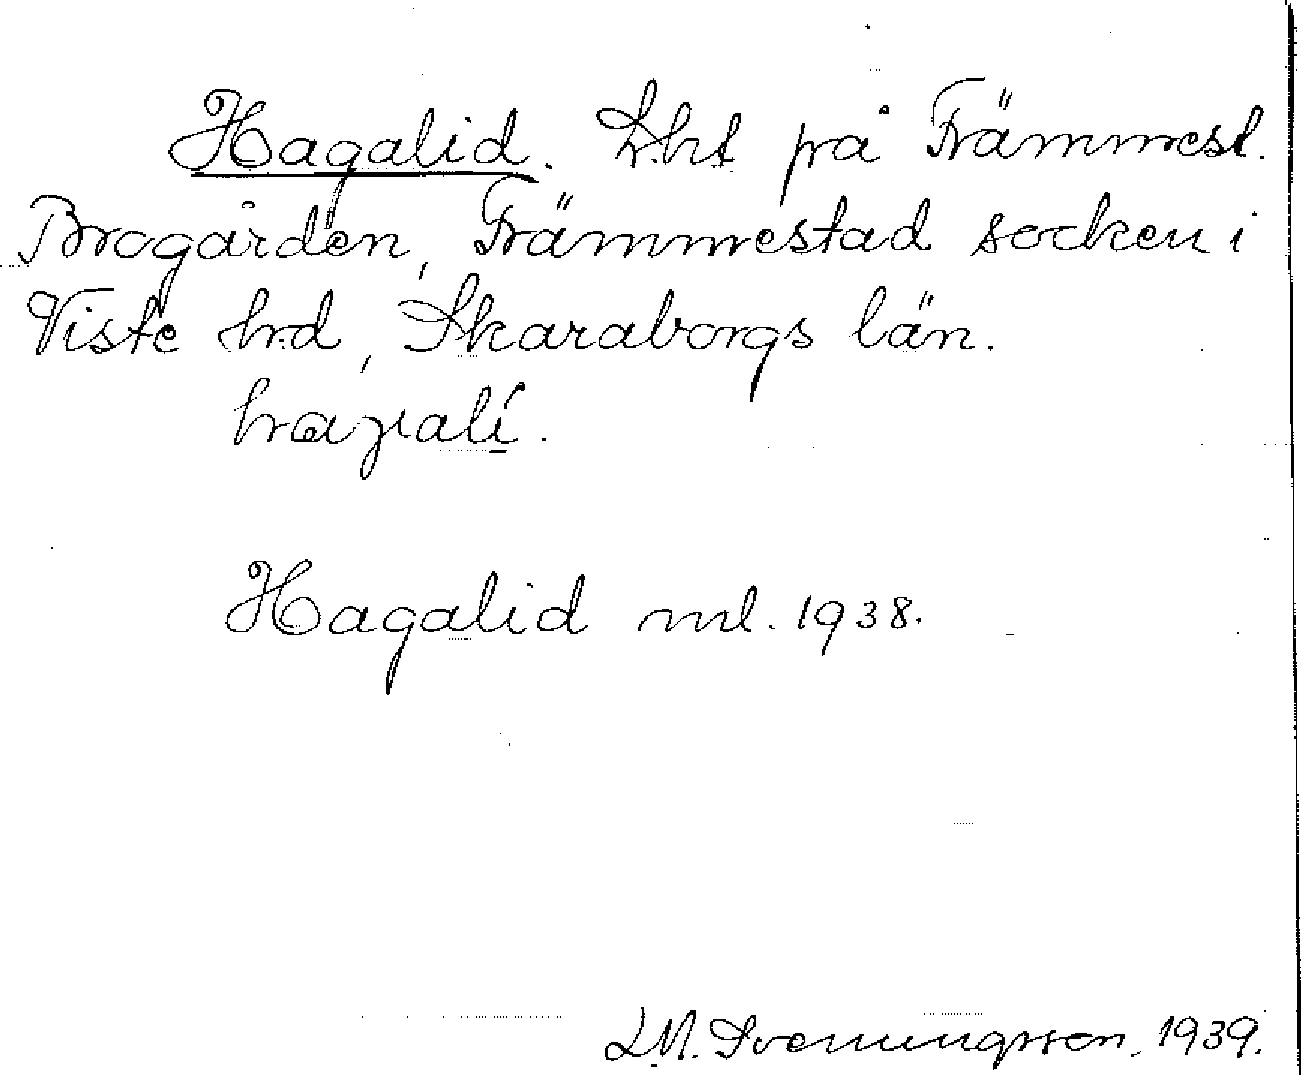 Hagalid. Lht på Främmest.
Brogården, Främmestad socken i
Viste hrd, Skaraborgs län.
Hagalid ml. 1938.
L.M. Svenungsson. 1939.